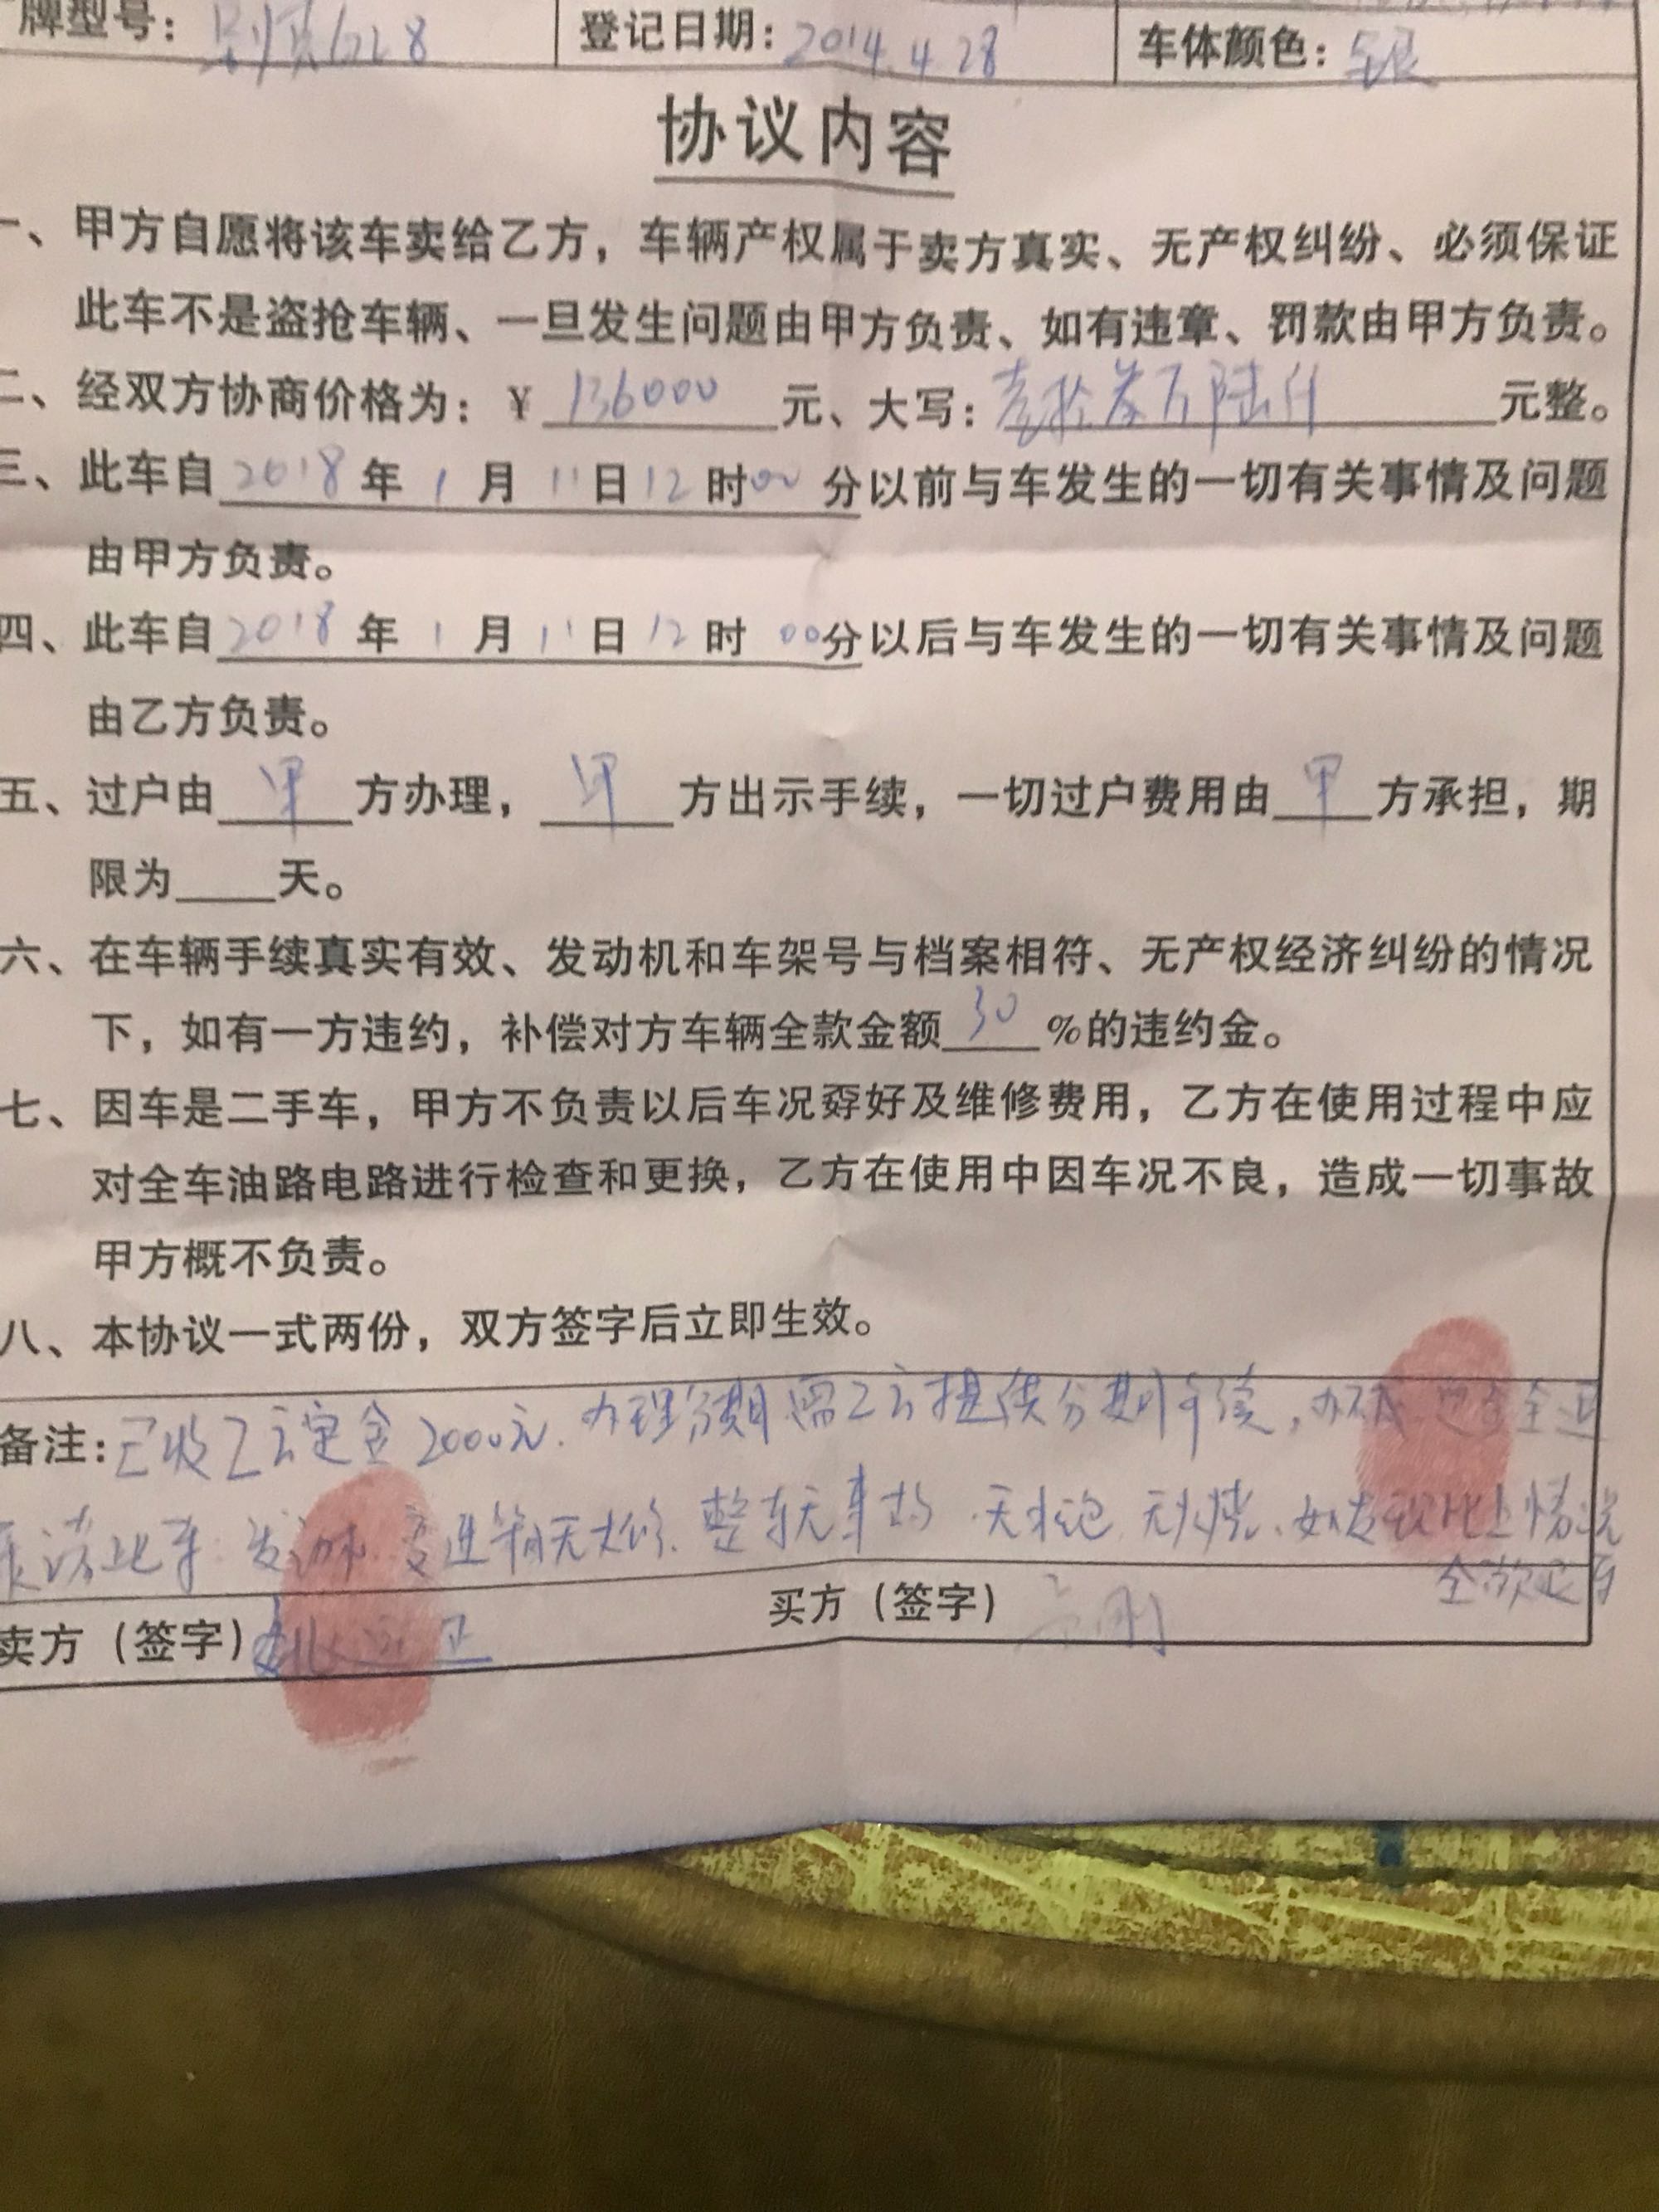 牌型号: GL8 登记日期: 2014.4.28 车体颜色: 银
协议内容
一、甲方自愿将该车卖给乙方，车辆产权属于卖方真实、无产权纠纷、必须保证
此车不是盗抢车辆、一旦发生问题由甲方负责、如有违章、罚款由甲方负责。
二、经双方协商价格为：￥ 136000 元、大写: 壹拾叁万陆仟 元整。
三、此车自 2018 年 1 月 11 日 12 时 00 分以前与车发生的一切有关事情及问题
由甲方负责。
四、此车自 2018 年 1 月 11 日 12 时 00 分以后与车发生的一切有关事情及问题
由乙方负责。
五、过户由 甲 方办理， 甲 方出示手续，一切过户费用由 甲 方承担，期
限为____天。
六、在车辆手续真实有效、发动机和车架号与档案相符、无产权经济纠纷的情况
下，如有一方违约，补偿对方车辆全款金额 30 %的违约金。
七、因车是二手车，甲方不负责以后车况孬好及维修费用，乙方在使用过程中应
对全车油路电路进行检查和更换，乙方在使用中因车况不良，造成一切事故
甲方概不负责。
八、本协议一式两份，双方签字后立即生效。
备注: 已收乙方定金2000元. 办理分期需乙方提供分期手续, 办不成定金全退
承诺此车: 发动机. 变速箱无大修. 整车无事故. 无水泡. 无火烧. 如发现以上情况
全款退车
卖方（签字） 买方（签字）